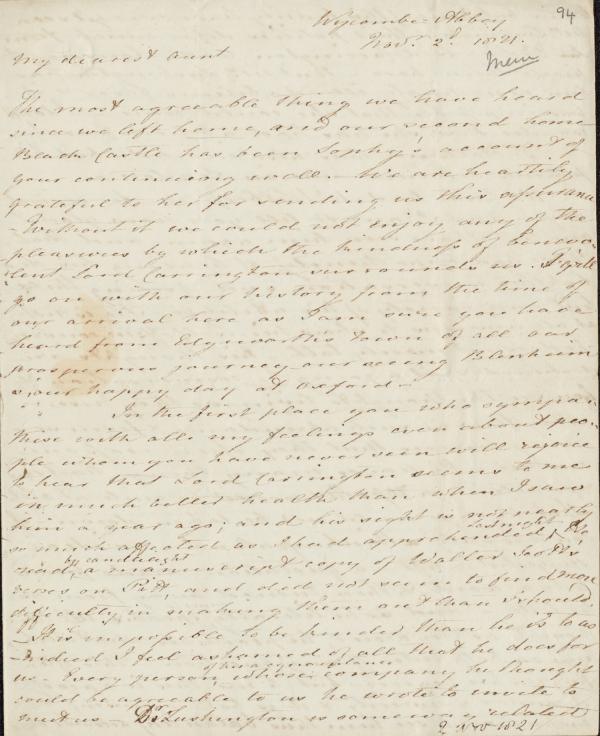 94
Wycombe-Abbey
Novr. 2d. 1821.
Mem
My dearest Aunt
The most agreeable thing we have heard
since we left home, and our second home
Black Castle has been Sophy's account of
your continuing well. We are heartily
grateful to her for sending us this assurance
- Without it we could not enjoy any of the
pleasures by which the kindness of benevo-
lent Lord Carrington surrounds us. I will
go on with our history from the time of
our arrival here as I am sure you have
heard from Edgeworth's Town of all our
prosperous journey our seeing Blenheim
& our happy day at Oxford -
In the first place you who sympa-
thise with all my feelings even about peo-
ple whom you have never seen will rejoice
to hear that Lord Carrington seems to me
in much better health than when I saw
him a year ago; and his sight is not nearly
so much affected as I had apprehended. last night He
read, by candlelight a manuscript copy of Walter Scott's
verses on Pitt, and did not seem to find more
difficulty in making them out than I should.
- It is impossible to be kinder than he is to us
- Indeed I feel ashamed of all that he does for
us - Every person of his acquaintance whose company he thought
would be agreeable to us he wrote to invite to
meet us - Dr. Lushington is someway related
2 Nov 1821